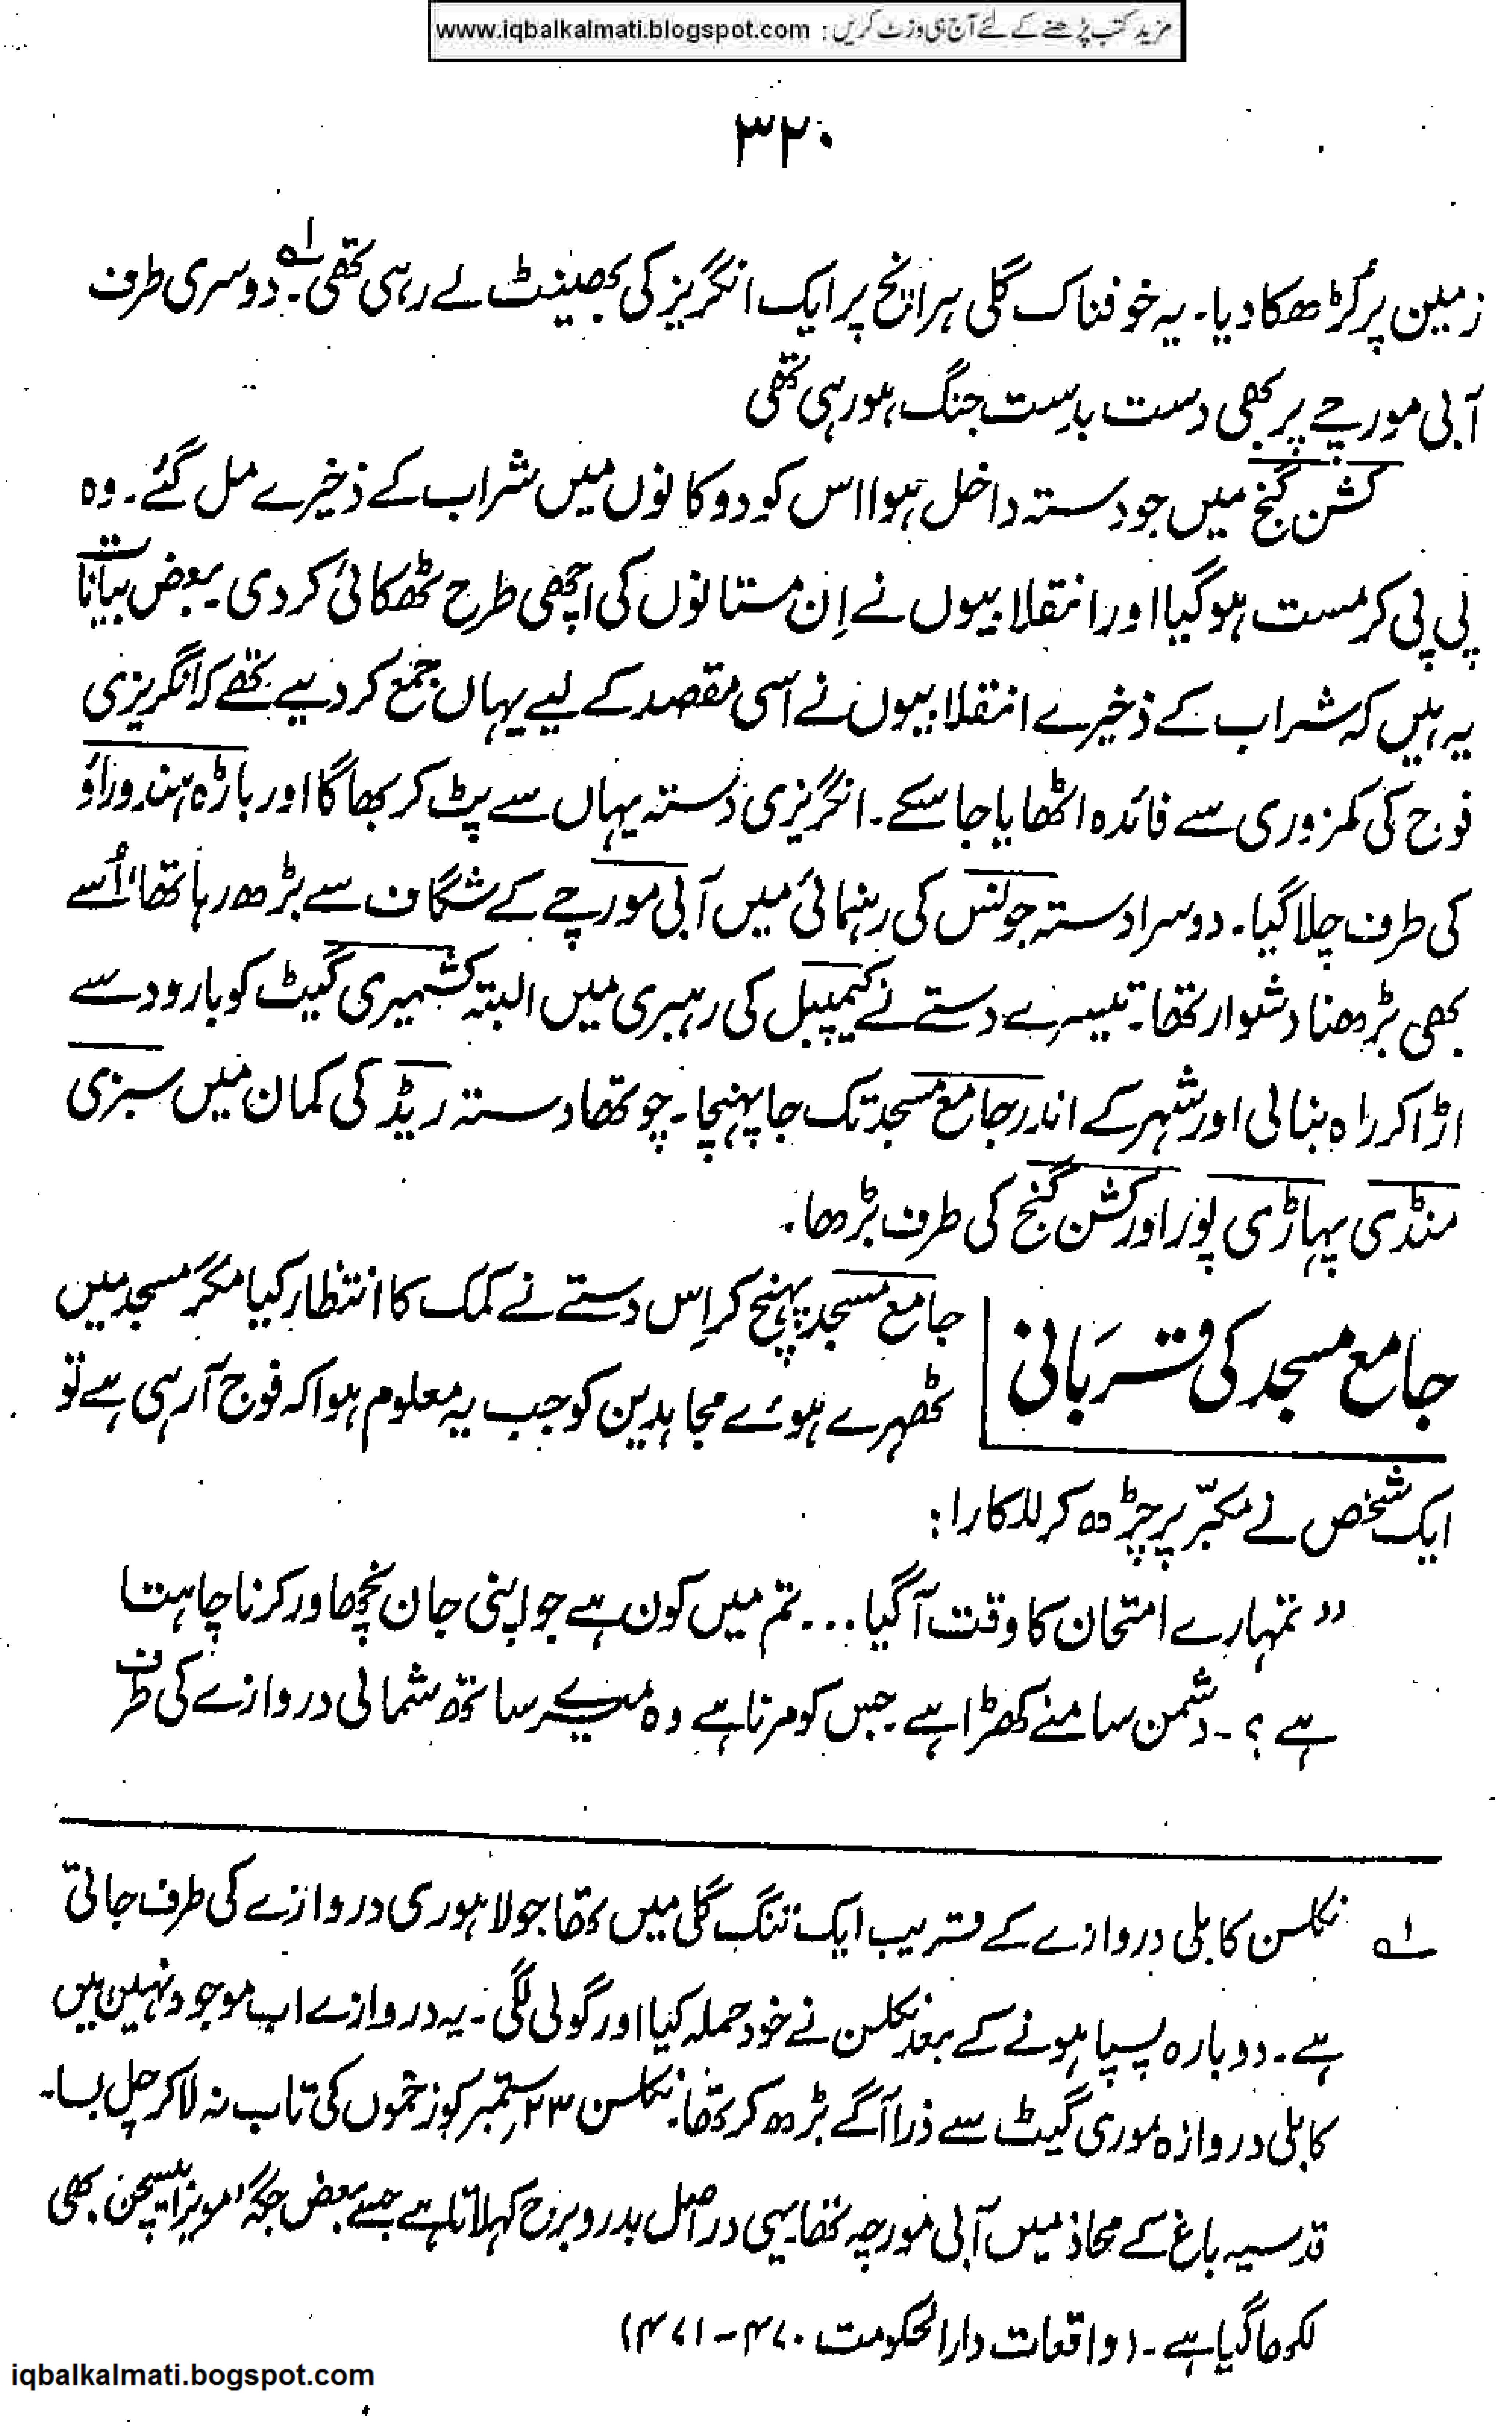 مزید کتب پڑھنے کے لئے آج ہی وزٹ کریں : www.iqbalkalmati.blogspot.com
۳۲۰
زمین پر لڑھکا دیا۔ یہ خوفناک گلی ہر انچ پر ایک انگریز کی بھینٹ لے رہی تھی۔ؔ۱ دوسری طرف
آبی مورچے پر بھی دست بدست جنگ ہو رہی تھی
کشن گنج میں جو دستہ داخل ہوا اس کو دوکانوں میں شراب کے ذخیرے مل گئے۔ وہ
پی پی کر مست ہو گیا اور انقلابیوں نے اِن مستانوں کی اچھی طرح ٹھکائی کر دی۔ بعض بیانات
یہ ہیں کہ شراب کے ذخیرے انقلابیوں نے اسی مقصد کے لیے یہاں جمع کر دیے تھے کہ انگریزی
فوج کی کمزوری سے فائدہ اٹھایا جا سکے۔ انگریزی دستہ یہاں سے پٹ کر بھاگا اور باڑہ ہندوراؤ
کی طرف چلا گیا۔ دوسرا دستہ جونس کی رہنمائی میں آبی مورچے کے شگاف سے بڑھ رہا تھا، اُسے
بھی بڑھنا دشوار تھا۔ تیسرے دستے نے کیمپبل کی رہبری میں البتہ کشمیری گیٹ کو بارود سے
اڑا کر راہ بنالی اور شہر کے اندر جامع مسجد تک جا پہنچا۔ چوتھا دستہ ریڈ کی کمان میں سبزی
منڈی پہاڑی پور اور کشن گنج کی طرف بڑھا۔
جامع مسجد کی قربانی
جامع مسجد پہنچ کر اِس دستے نے کمک کا انتظار کیا مگر مسجد میں
ٹھہرے ہوئے مجاہدین کو جب یہ معلوم ہوا کہ فوج آ رہی ہے تو
ایک شخص نے مکبّر پر چڑھ کر للکارا:
”تمہارے امتحان کا وقت آ گیا ... تم میں کون ہے جو اپنی جان نچھاور کرنا چاہتا
ہے ؟۔ دشمن سامنے کھڑا ہے۔ جس کو مرنا ہے وہ میرے ساتھ شمالی دروازے کی طرف
۱ؔ نکلسن کابلی دروازے کے قریب ایک تنگ گلی میں تھا جو لاہوری دروازے کی طرف جاتی
ہے۔ دوبارہ پسپا ہونے کے بعد نکلسن نے خود حملہ کیا اور گولی لگی۔ یہ دروازے اب موجود نہیں ہیں
کابلی دروازہ موری گیٹ سے ذرا آگے بڑھ کر تھا۔ نکلسن ۲۳ ستمبر کو زخموں کی تاب نہ لا کر چل بسا۔
قدسیہ باغ کے محاذ میں آبی مورچہ تھا۔ یہی در اصل بدرو برج کہلاتا ہے جسے بعض جگہ 'مویزا یسچن' بھی
لکھا گیا ہے۔ (واقعات دارالحکومت ۴۷۰-۴۷۱)
iqbalkalmati.bogspot.com